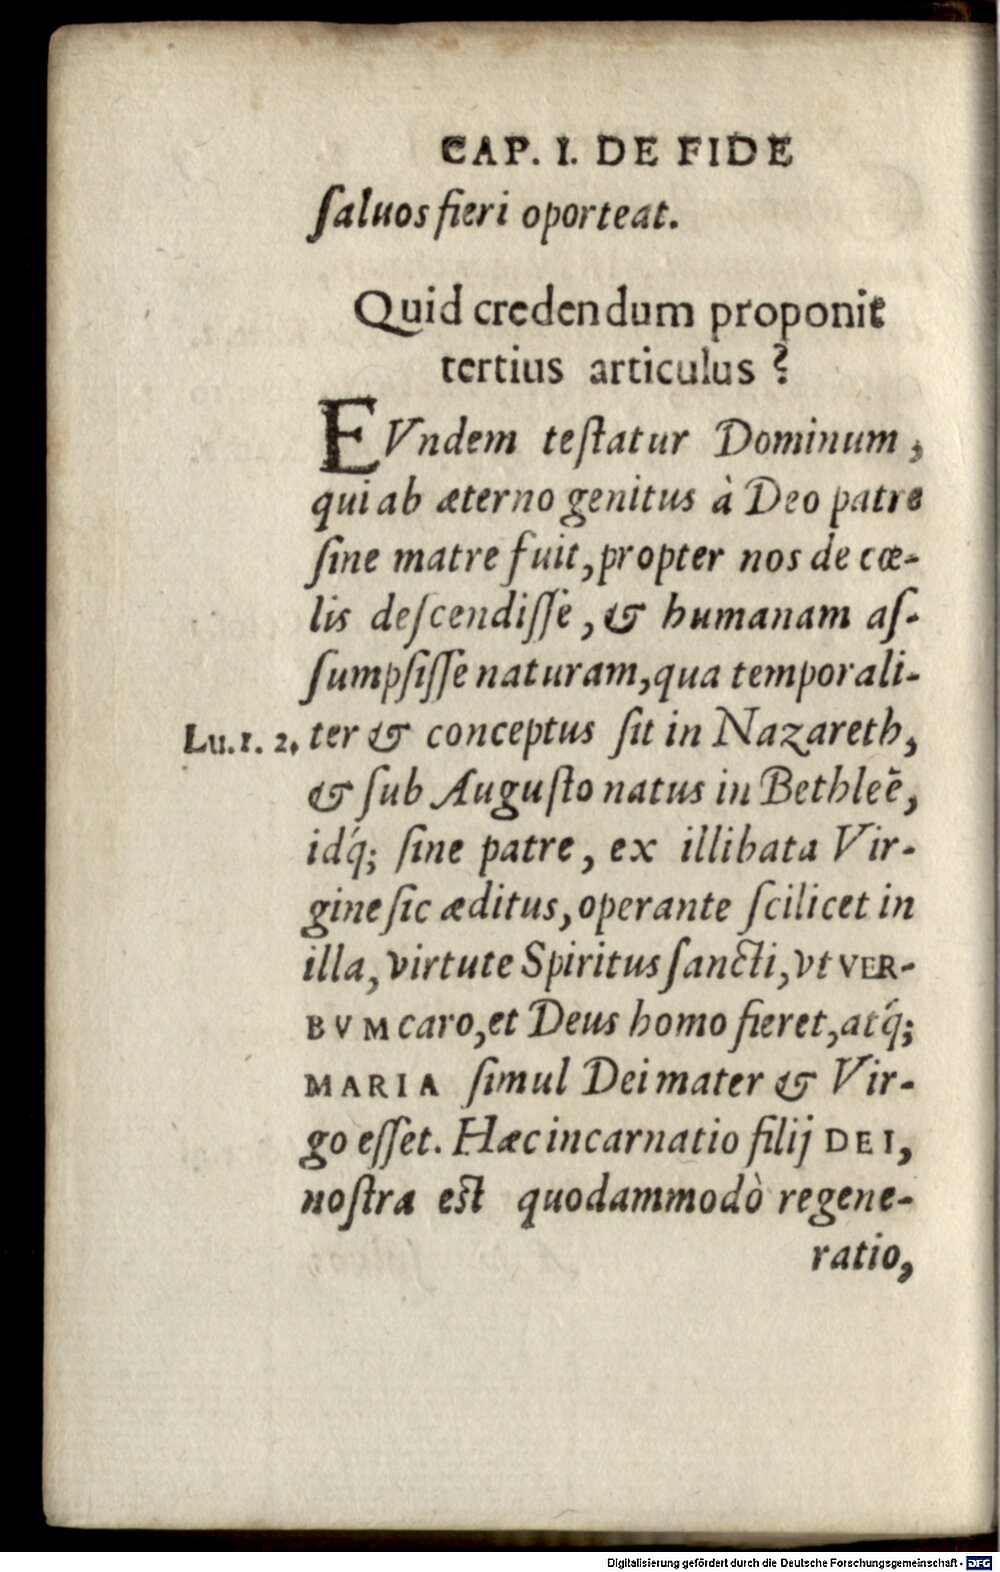 CAP. I. DE FIDE
ſaluos fieri oporteat.
Quid credendum proponit
tertius articulus?
EVndem teſtatur Dominum,
qui ab æterno genitus à Deo patre
ſine matre fuit, propter nos de cœ-
lis deſcendiſſe, & humanam aſ-
ſumpſiſſe naturam, qua temporali-
Lu.1. 2. ter & conceptus ſit in Nazareth,
& ſub Auguſto natus in Bethleẽ,
idq́; ſine patre, ex illibata Vir-
gine ſic æditus, operante ſcilicet in
illa, virtute Spiritus ſancti, vt VER-
BVM caro, et Deus homo fieret, atq́;
MARIA ſimul Dei mater & Vir-
go eſſet. Hæc incarnatio filij DEI,
noſtra eſt quodammodò regene-
ratio,
Digitalisierung gefördert durch die Deutsche Forschungsgemeinschaft - DFG